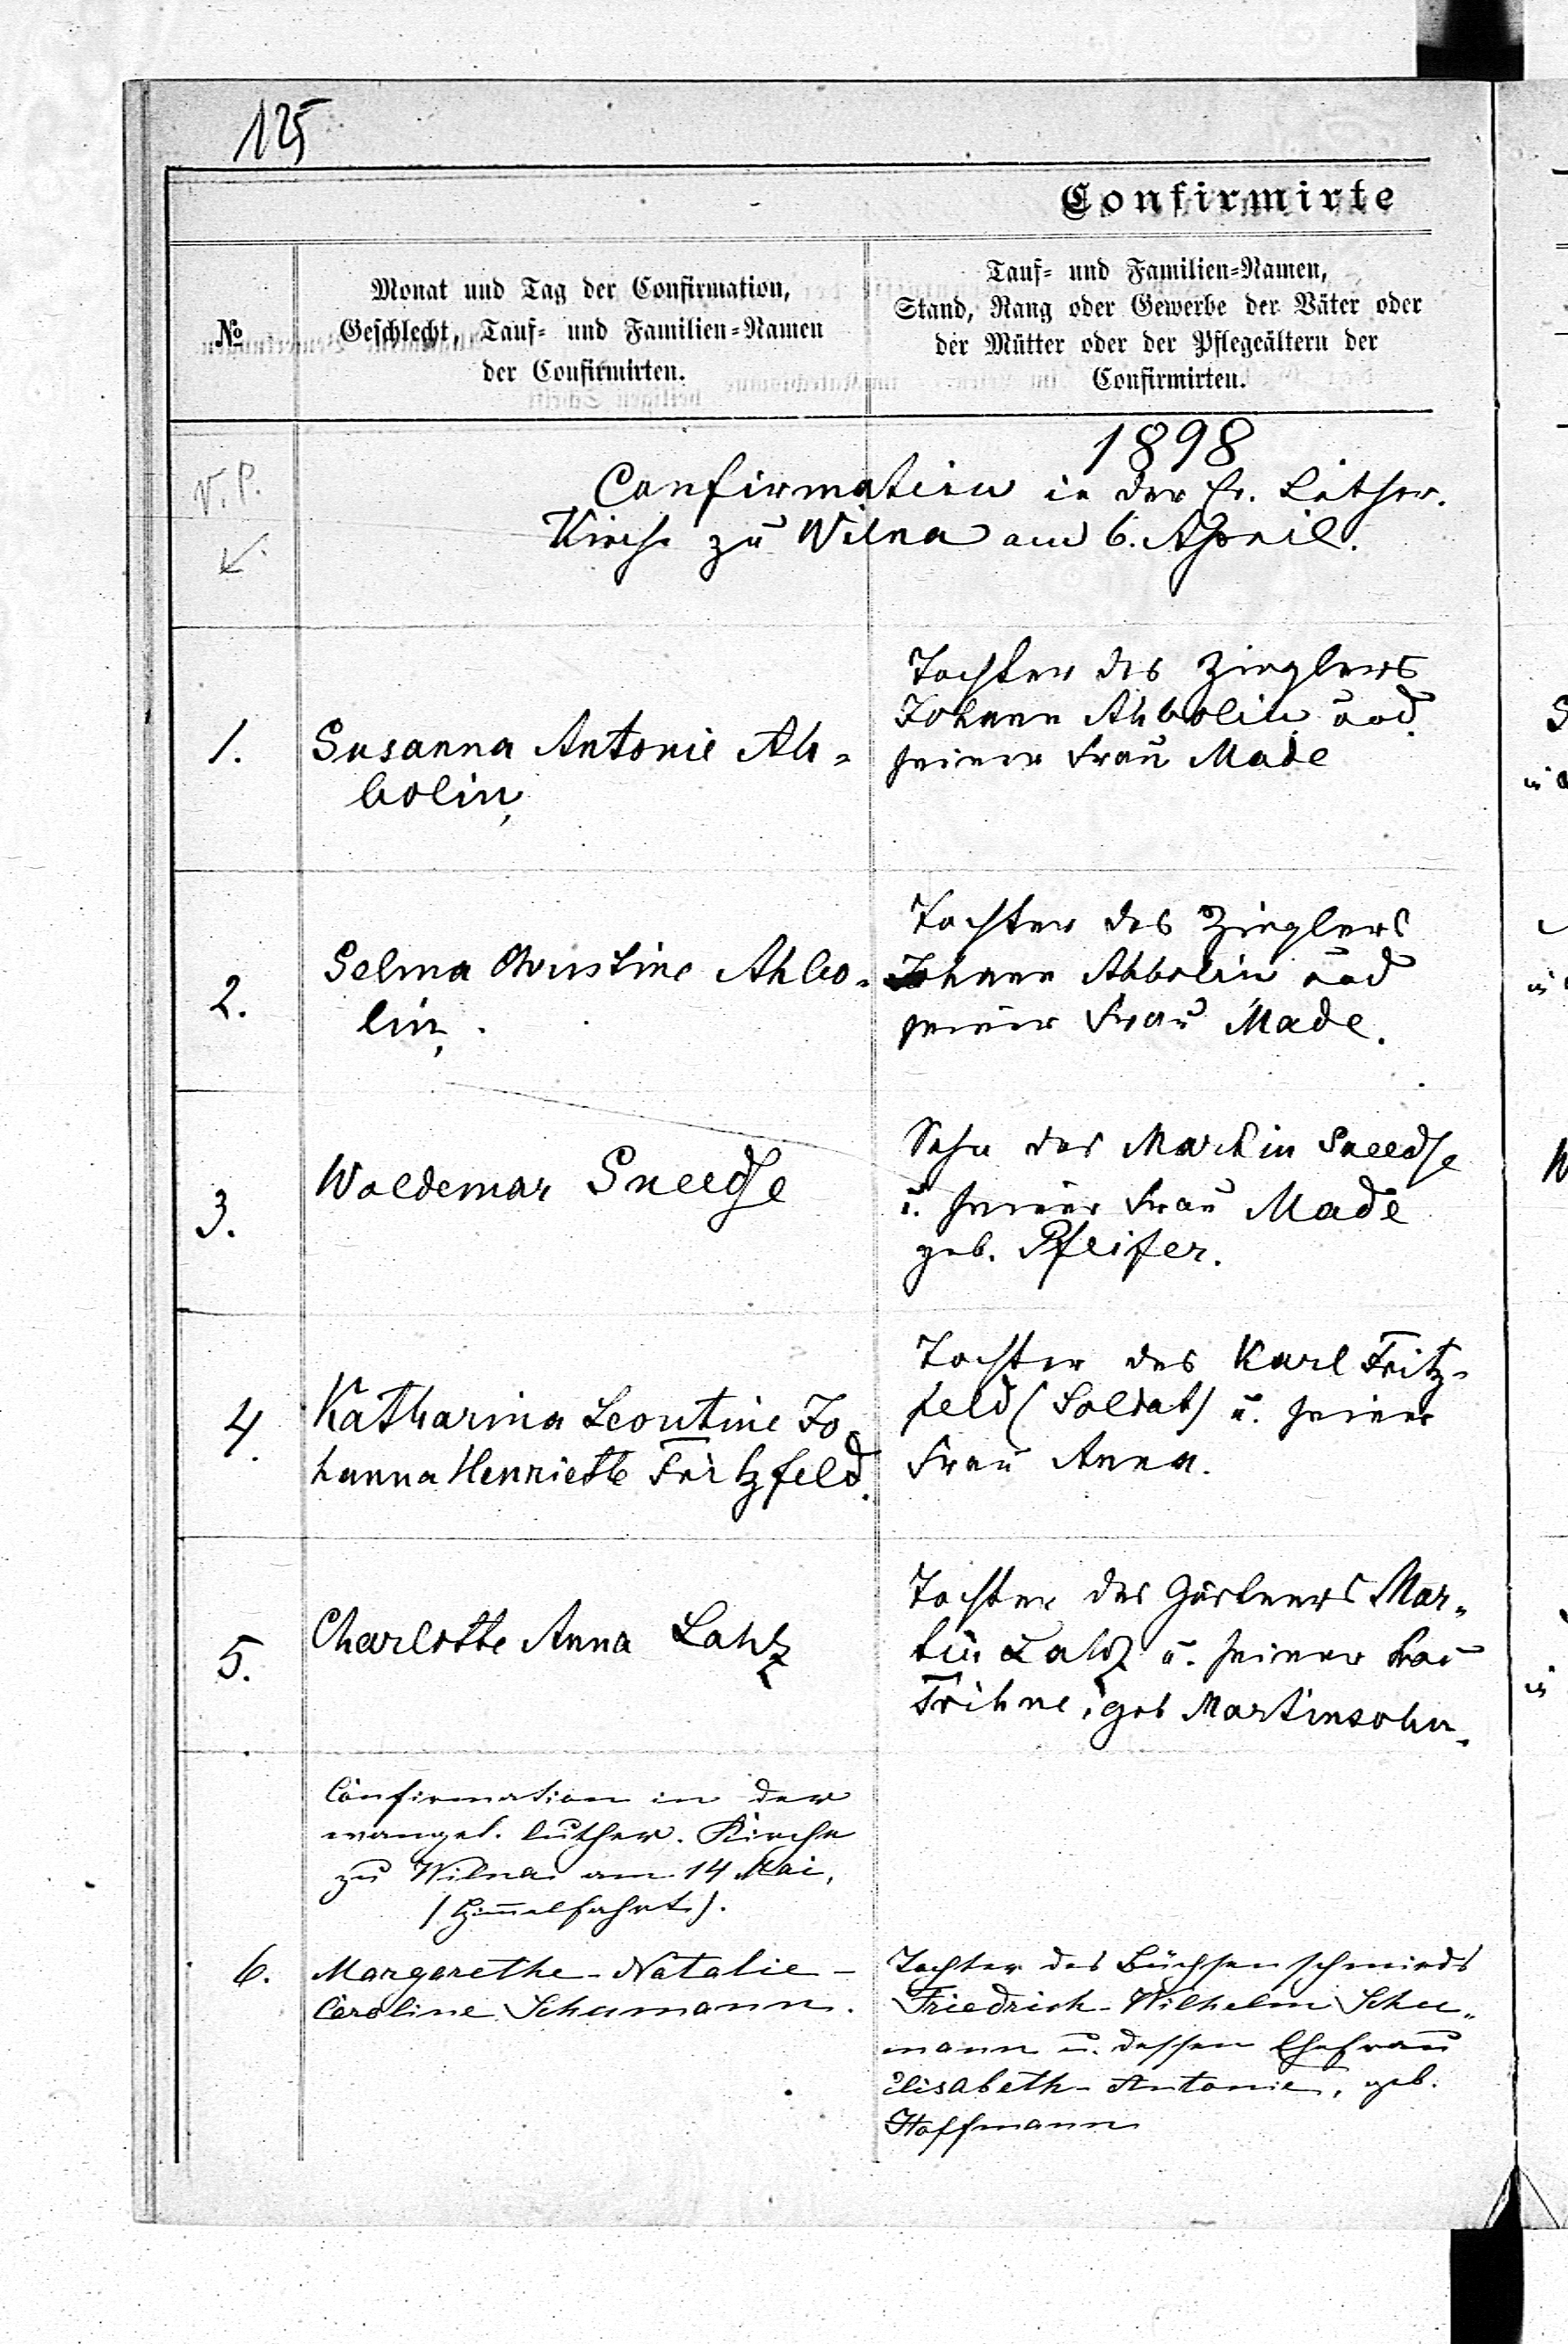 125
Confirmirte
№
Monat und Tag der Confirmation,
Geschlecht, Tauf- und Familien-Namen
der Confirmirten.
Tauf- und Familien-Namen,
Stand, Rang oder Gewerbe der Väter oder
der Mütter oder der Pflegeältern der
Confirmirten.
1898
V. P.
Confirmation in der Ev. Luther.
Kirche zu Wilna am 6. April.
1.
Susanna Antonie Ah-
bolin,
Tochter des Zieglers
Johann Ahbolin und
seiner Frau Made
2.
Selma Christine Ahbo-
lin,
Tochter des Zieglers
Johann Ahbolin und
seiner Frau Made.
3.
Woldemar Sneedse
Sohn des Martin Sneedse
u. seiner Frau Made
geb. Pfeifer.
4.
Katharina Leontine Jo-
hanna Henriette Fritzfeld.
Tochter des Karl Fritz-
feld (Soldat) u. seiner
Frau Anna.
5.
Charlotte Anna Lahz
Tochter des Gärtners Mar-
tin Lahz u. seiner Frau
Trihne, geb Martinsohn.
Confirmation in der
evangel. luther. Kirche
zu Wilna am 14 Mai,
(Himmelfahrt).
6.
Margarethe-Natalie-
Caroline Schumann.
Tochter des Büchsenschmieds
Friedrich-Wilhelm Schu-
mann u. dessen Ehefrau
Elisabeth-Antonie, geb.
Hoffmann